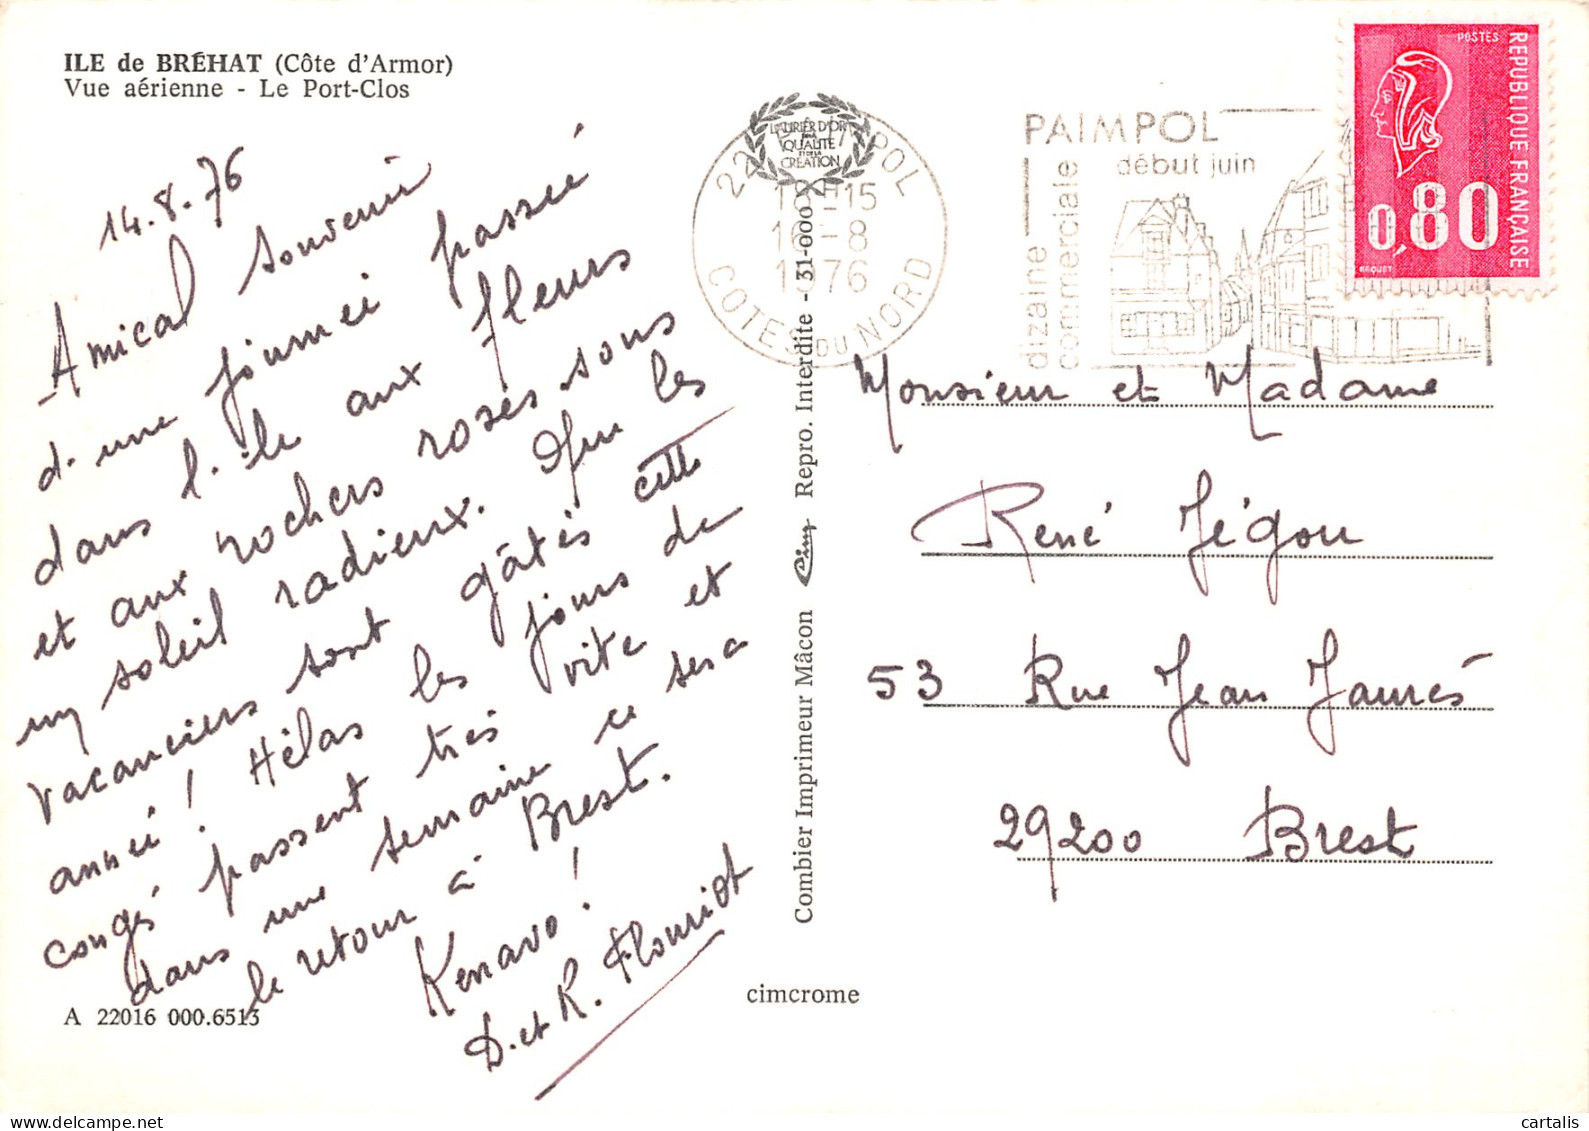 ILE de BRÉHAT (Côte d'Armor)
Vue aérienne - Le Port-Clos
14.8.76
Amical souvenir
d'une journée passée
dans l'île aux fleurs
et aux rochers rosés sous
un soleil radieux. Que les
vacanciers sont gâtés cette
année ! Hélas les jours de
congés passent très vite et
dans une semaine ce sera
le retour à Brest.
Kenavo !
D. et R. Flouriot
A 22016 000.6513
LAURIER D'OR
QUALITÉ
ET DE LA
CRÉATION
22 PAIMPOL
18-15
16-8
1976
COTES DU NORD
PAIMPOL
début juin
dizaine
commerciale
POSTES
REPUBLIQUE FRANÇAISE
0,80
BEQUET
Combier Imprimeur Mâcon Cim Repro. Interdite - 31-000
Monsieur et Madame
René Jégou
53 Rue Jean Jaurés
29200 Brest
cimcrome
cartalis